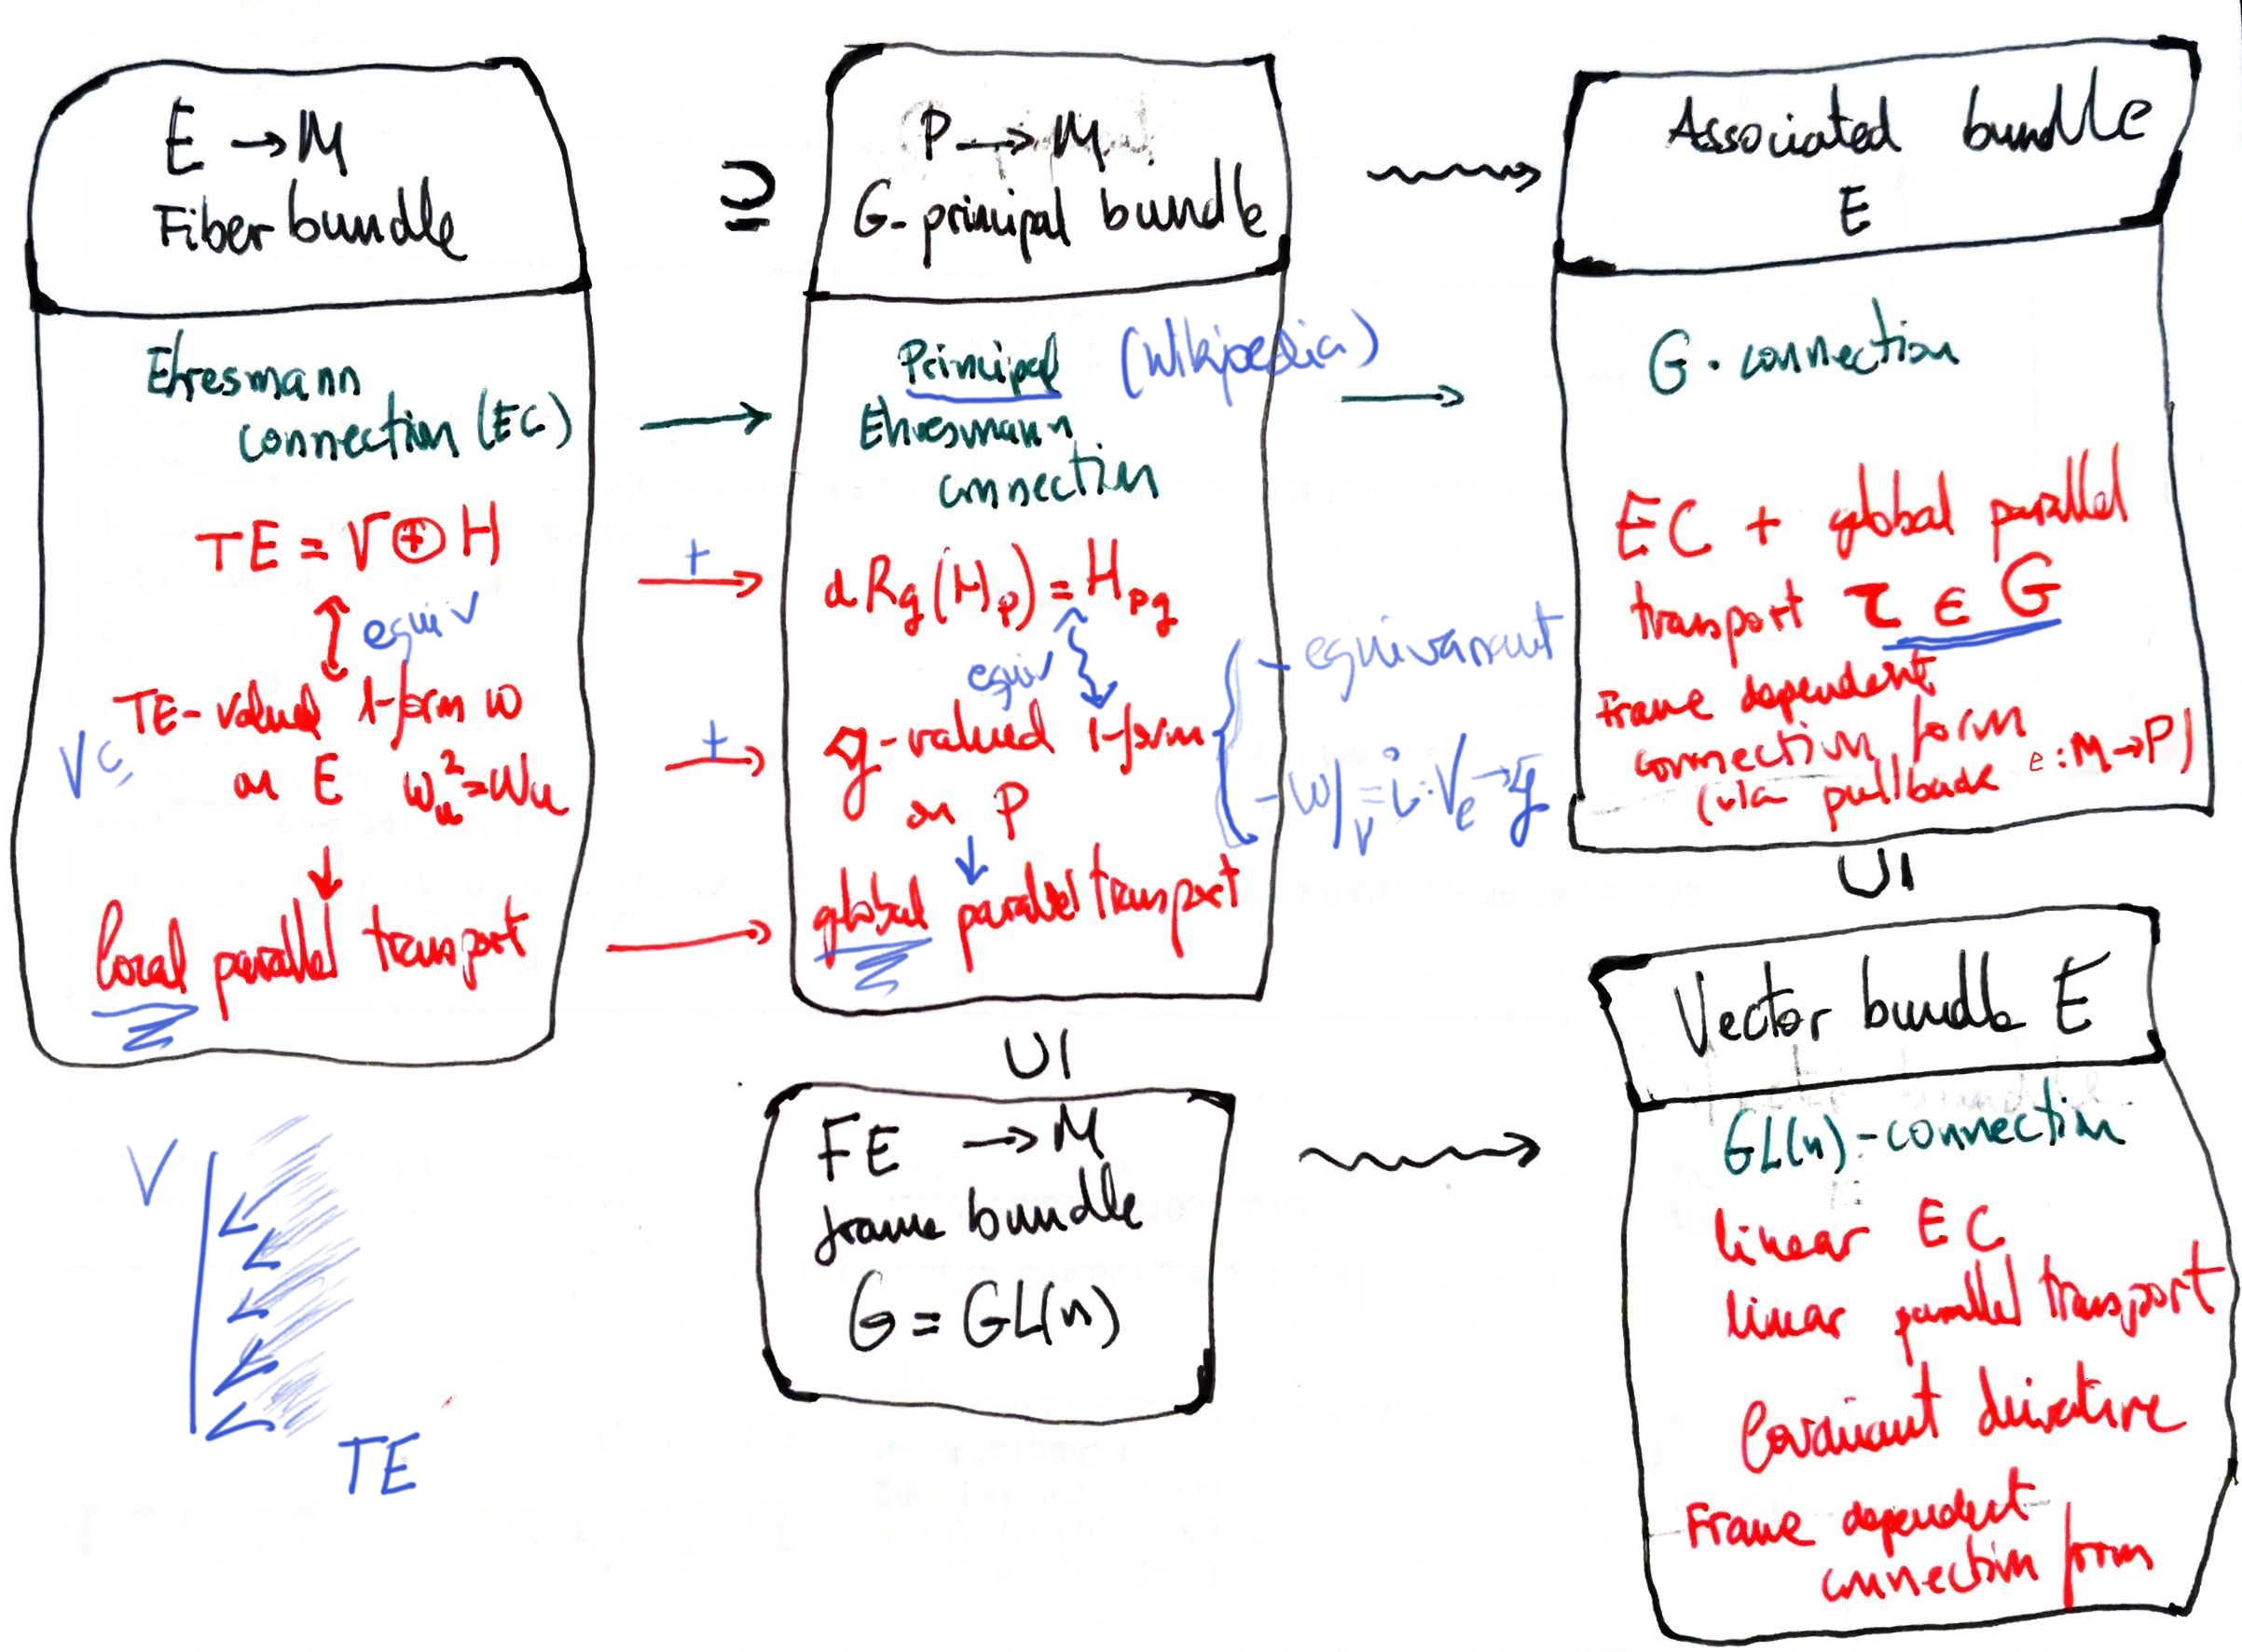 E → M
Fiber bundle
Ehresmann
connection (EC)
TE = V ⊕ H
equiv
TE-valued 1-form ω
V ⊆
on E ω_u²=ω_u
local parallel transport
V
TE
⊇
P → M
G-principal bundle
Principal (Wikipedia)
Ehresmann
connection
+
dRg(H_p) = H_pg
equiv
- equivariant
+
𝔤-valued 1-form
on P
- ω|_V = i: V_e → 𝔤
global parallel transport
UI
FE → M
frame bundle
G = GL(n)
Associated bundle
E
G-connection
EC + global parallel
transport τ ∈ G
Frame dependent
connection form
(via pullback e: M→P)
UI
Vector bundle E
GL(n)-connection
linear EC
linear parallel transport
Covariant derivative
Frame dependent
connection form